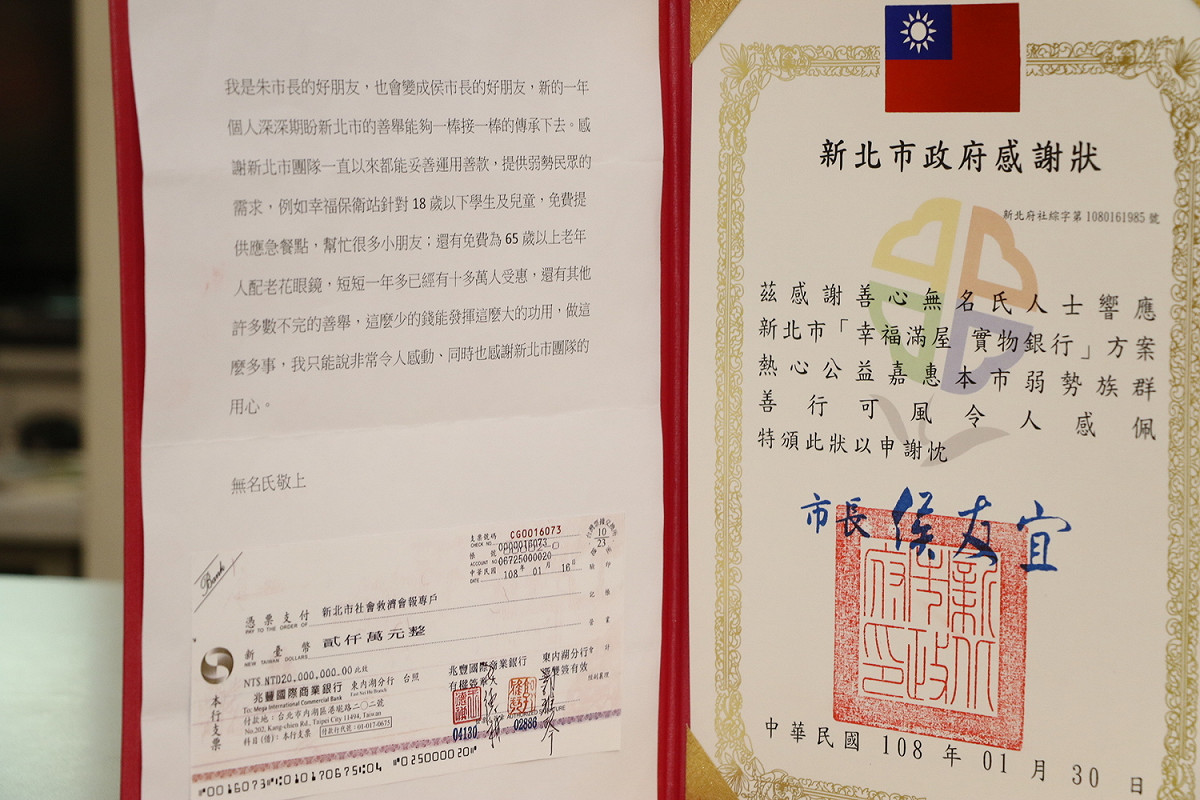 我是朱市長的好朋友，也會變成侯市長的好朋友，新的一年
個人深深期盼新北市的善舉能夠一棒接一棒的傳承下去。感
謝新北市團隊一直以來都能妥善運用善款，提供弱勢民眾的
需求，例如幸福保衛站針對 18 歲以下學生及兒童，免費提
供應急餐點，幫忙很多小朋友；還有免費為 65 歲以上老年
人配老花眼鏡，短短一年多已經有十多萬人受惠，還有其他
許多數不完的善舉，這麼少的錢能發揮這麼大的功用，做這
麼多事，我只能說非常令人感動、同時也感謝新北市團隊的
用心。
無名氏敬上
Bank
支票號碼 CG0016073
CHECK NO. 000016073
帳號
ACCOUNT NO. 06725000020
中華民國 108 年 01 月 16 日
DATE
憑票支付 新北市社會救濟會報專戶
PAY TO THE ORDER OF
新臺幣 貳仟萬元整
NEW TAIWAN DOLLARS
NT$ NTD20,000,000.00 此致
兆豐國際商業銀行 東內湖分行 台照
To: Mega International Commercial Bank East Nei Hu Branch
付款地：台北市內湖區港墘路二〇二號
No.202, Kang-chien Rd., Taipei City 11494, Taiwan
科目(借)：本行支票 付款行代號：01-017-0675
本行支票
兆豐國際商業銀行 東內湖分行
有權簽 雙簽有效
04130 02886
新北市政府感謝狀
新北府社綜字第 1080161985 號
茲感謝善心無名氏人士響應
新北市「幸福滿屋 實物銀行」方案
熱心公益嘉惠本市弱勢族群
善行可風令人感佩
特頒此狀以申謝忱
市長 侯友宜
新北市政府印
中華民國 108 年 01 月 30 日